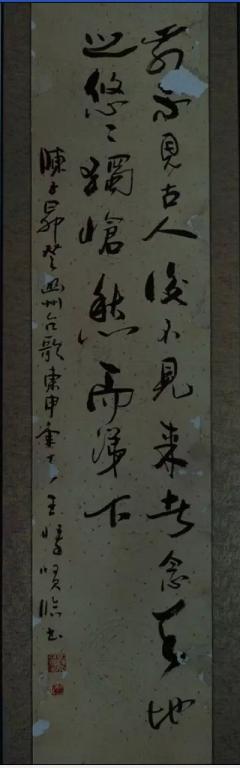 前不見古人後不見来者念天地
之悠々獨愴然而涕下
陳子昂登幽州台歌 申年 王 臨書